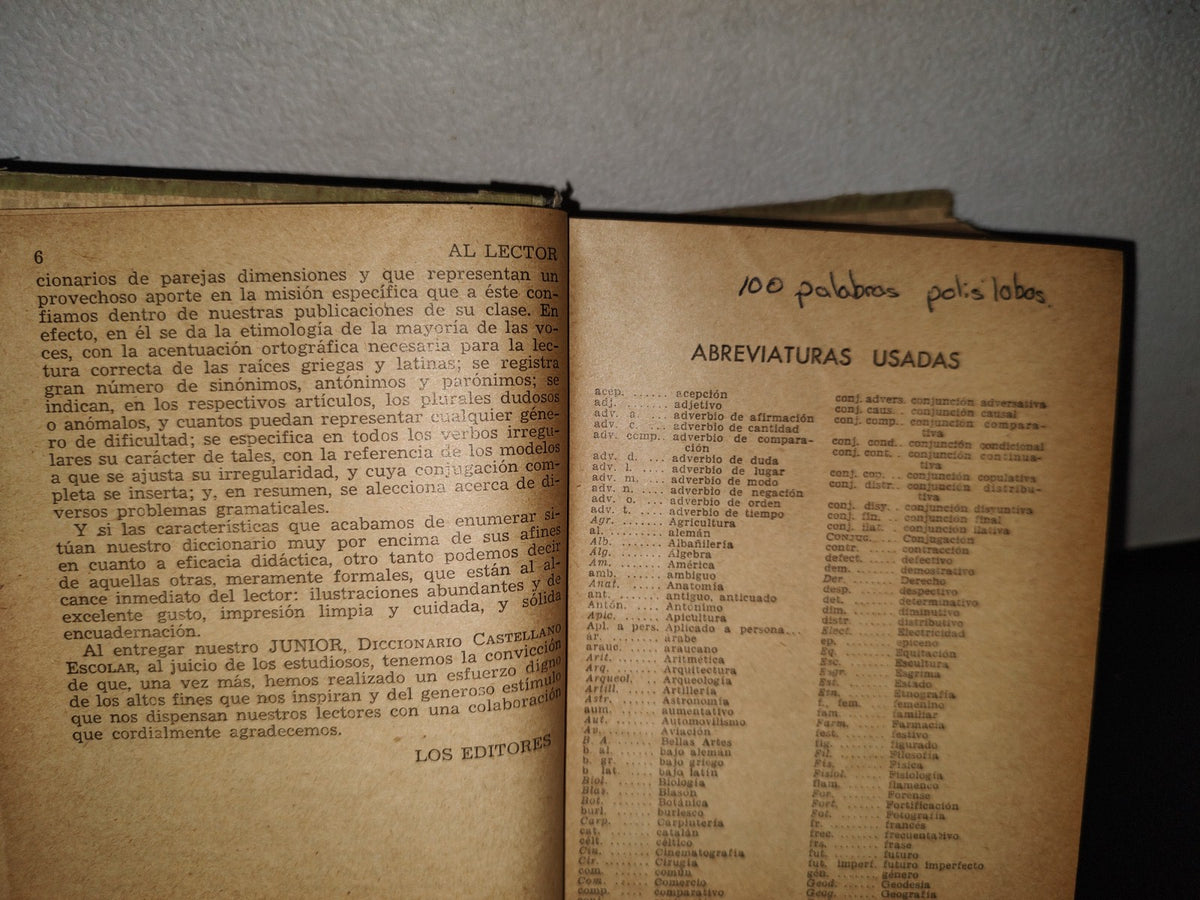 6
AL LECTOR
cionarios de parejas dimensiones y que representan un
provechoso aporte en la misión específica que a éste con-
fiamos dentro de nuestras publicaciones de su clase. En
efecto, en él se da la etimología de la mayoría de las vo-
ces, con la acentuación ortográfica necesaria para la lec-
tura correcta de las raíces griegas y latinas; se registra
gran número de sinónimos, antónimos y parónimos; se
indican, en los respectivos artículos, los plurales dudosos
o anómalos, y cuantos puedan representar cualquier géne-
ro de dificultad; se especifica en todos los verbos irregu-
lares su carácter de tales, con la referencia de los modelos
a que se ajusta su irregularidad, y cuya conjugación com-
pleta se inserta; y, en resumen, se alecciona acerca de di-
versos problemas gramaticales.
Y si las características que acabamos de enumerar si-
túan nuestro diccionario muy por encima de sus afines
en cuanto a eficacia didáctica, otro tanto podemos decir
de aquellas otras, meramente formales, que están al al-
cance inmediato del lector: ilustraciones abundantes y de
excelente gusto, impresión limpia y cuidada, y sólida
encuadernación.
Al entregar nuestro JUNIOR, DICCIONARIO CASTELLANO
ESCOLAR, al juicio de los estudiosos, tenemos la convicción
de que, una vez más, hemos realizado un esfuerzo digno
de los altos fines que nos inspiran y del generoso estímulo
que nos dispensan nuestros lectores con una colaboración
que cordialmente agradecemos.
LOS EDITORES
100 palabras polisílabas.
ABREVIATURAS USADAS
acep. ...... acepción
adj. ....... adjetivo
adv. a. ... adverbio de afirmación
adv. c. ... adverbio de cantidad
adv. comp.. adverbio de compara-
ción
adv. d. .... adverbio de duda
adv. l. .... adverbio de lugar
adv. m. .... adverbio de modo
adv. n. .... adverbio de negación
adv. o. .... adverbio de orden
adv. t. .... adverbio de tiempo
Agr. ....... Agricultura
al. ........ alemán
Alb. ....... Albañilería
Álg. ....... Álgebra
Am. ....... América
amb. ...... ambiguo
Anat. ..... Anatomía
ant. ....... antiguo, anticuado
Antón. .... Antónimo
Apic. ...... Apicultura
Apl. a pers. Aplicado a persona...
ár. ......... árabe
arauc. ..... araucano
Arit. ....... Aritmética
Arq. ....... Arquitectura
Arqueol. ... Arqueología
Artill. ..... Artillería
Astr. ...... Astronomía
aum. ...... aumentativo
Aut. ....... Automovilismo
Av. ........ Aviación
B. A. ...... Bellas Artes
b. al. ...... bajo alemán
b. gr. ..... bajo griego
b. lat. .... bajo latín
Biol. ...... Biología
Blas. ...... Blasón
Bot. ....... Botánica
burl. ...... burlesco
Carp. ...... Carpintería
cat. ....... catalán
célt. ...... céltico
Cin. ....... Cinematografía
Cir. ....... Cirugía
com. ...... común
Com. ...... Comercio
comp. ..... comparativo
conj. advers. conjunción adversativa
conj. caus. . conjunción causal
conj. comp.. conjunción compara-
tiva
conj. cond.. conjunción condicional
conj. cont.. conjunción continua-
tiva
conj. cop. .. conjunción copulativa
conj. distr.. conjunción distribu-
tiva
conj. disy. . conjunción disyuntiva
conj. fin. .. conjunción final
conj. ilat. . conjunción ilativa
CONJUG. .... Conjugación
contr. ..... contracción
defect. .... defectivo
dem. ...... demostrativo
Der. ....... Derecho
desp. ...... despectivo
det. ....... determinativo
dim. ...... diminutivo
distr. ..... distributivo
Elect. ..... Electricidad
ep. ........ epiceno
Eq. ........ Equitación
Esc. ....... Escultura
Esgr. ...... Esgrima
Est. ....... Estado
Etn. ....... Etnografía
f., fem. ... femenino
fam. ...... familiar
Farm. ..... Farmacia
fest. ...... festivo
fig. ........ figurado
Fil. ........ Filosofía
Fís. ........ Física
Fisiol. ..... Fisiología
flam. ...... flamenco
For. ....... Forense
Fort. ...... Fortificación
Fot. ....... Fotografía
fr. ......... francés
frec. ...... frecuentativo
frs. ........ frase
fut. ....... futuro
fut. imperf. futuro imperfecto
gén. ....... género
Geod. ...... Geodesia
Geog. ...... Geografía